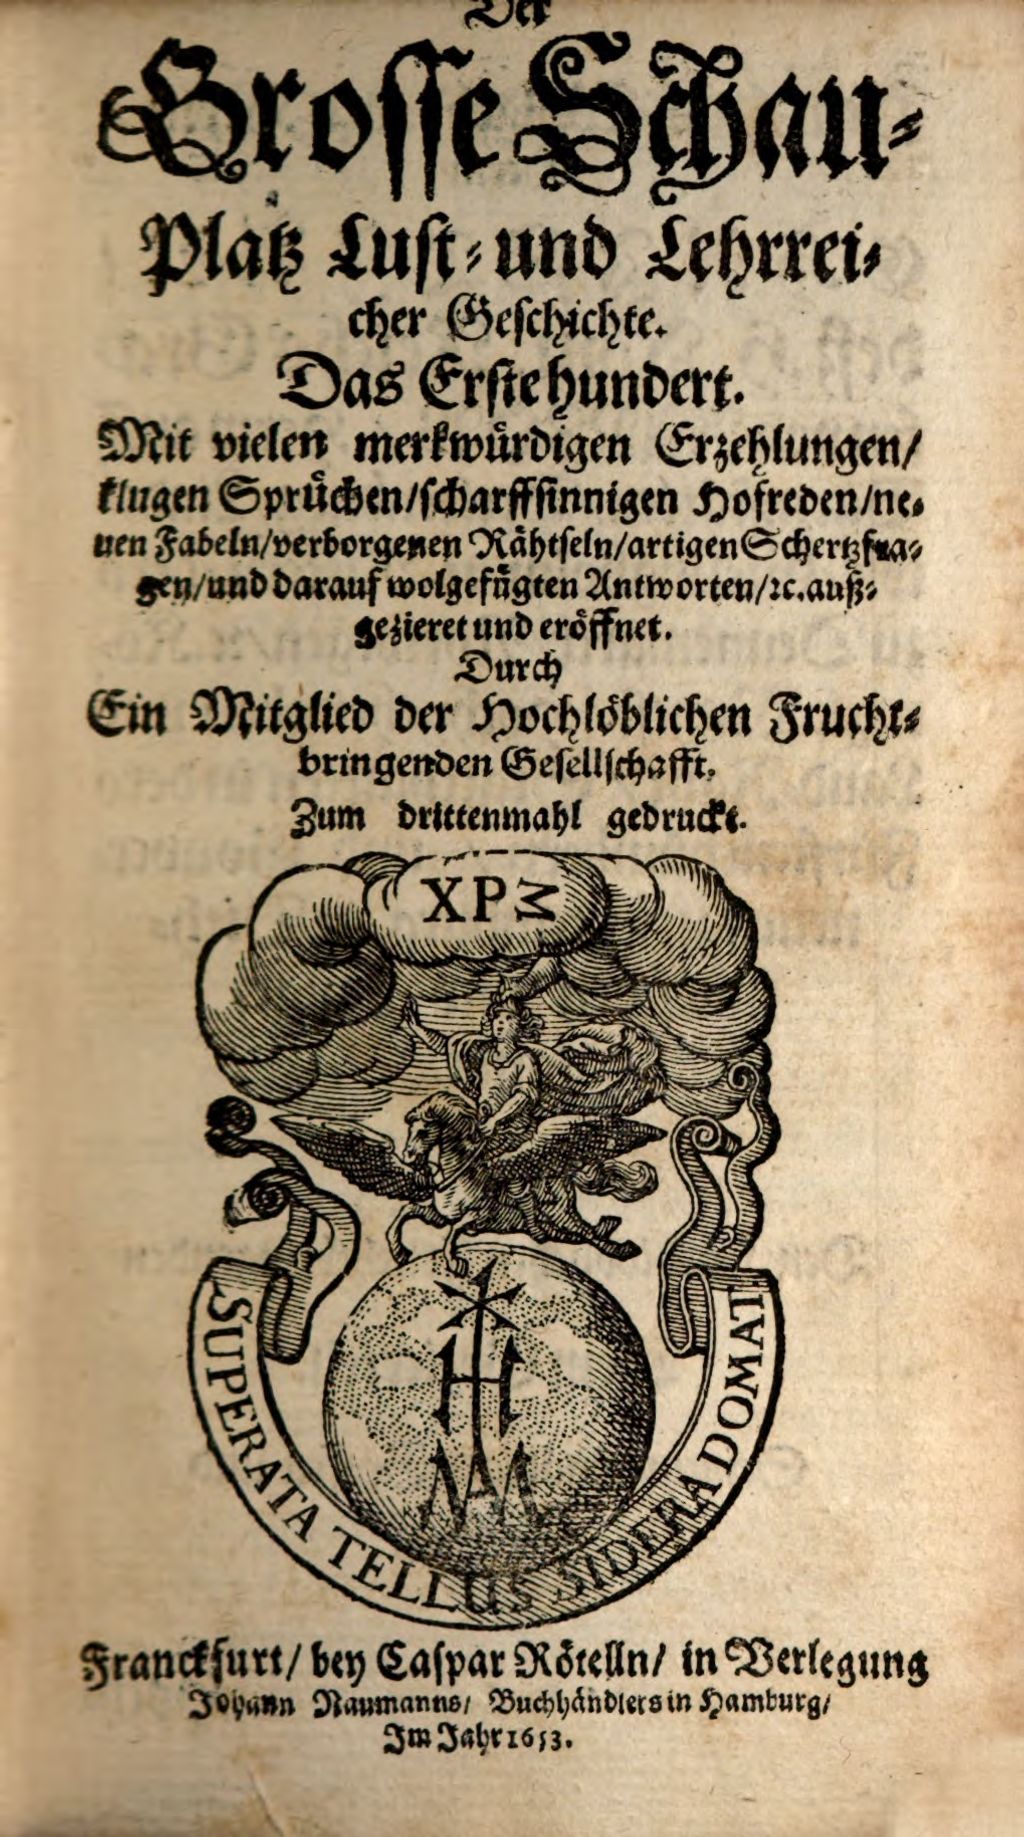 Der
Grosse Schau-
Platz Lust- und Lehrrei-
cher Geschichte.
Das Erste hundert.
Mit vielen merkwürdigen Erzehlungen/
klugen Sprüchen/scharffsinnigen Hofreden/ne-
uen Fabeln/verborgenen Rähtseln/artigen Schertzfra-
gen/und darauf wolgefügten Antworten/ꝛc.auß-
gezieret und eröffnet.
Durch
Ein Mitglied der Hochlöblichen Frucht-
bringenden Gesellschafft.
Zum drittenmahl gedruckt.
XPΣ
H
M
SUPERATA TELLUS SIDERA DOMAT
Franckfurt/ bey Caspar Rötelln/ in Verlegung
Johann Naumanns/ Buchhändlers in Hamburg/
Im Jahr 1653.